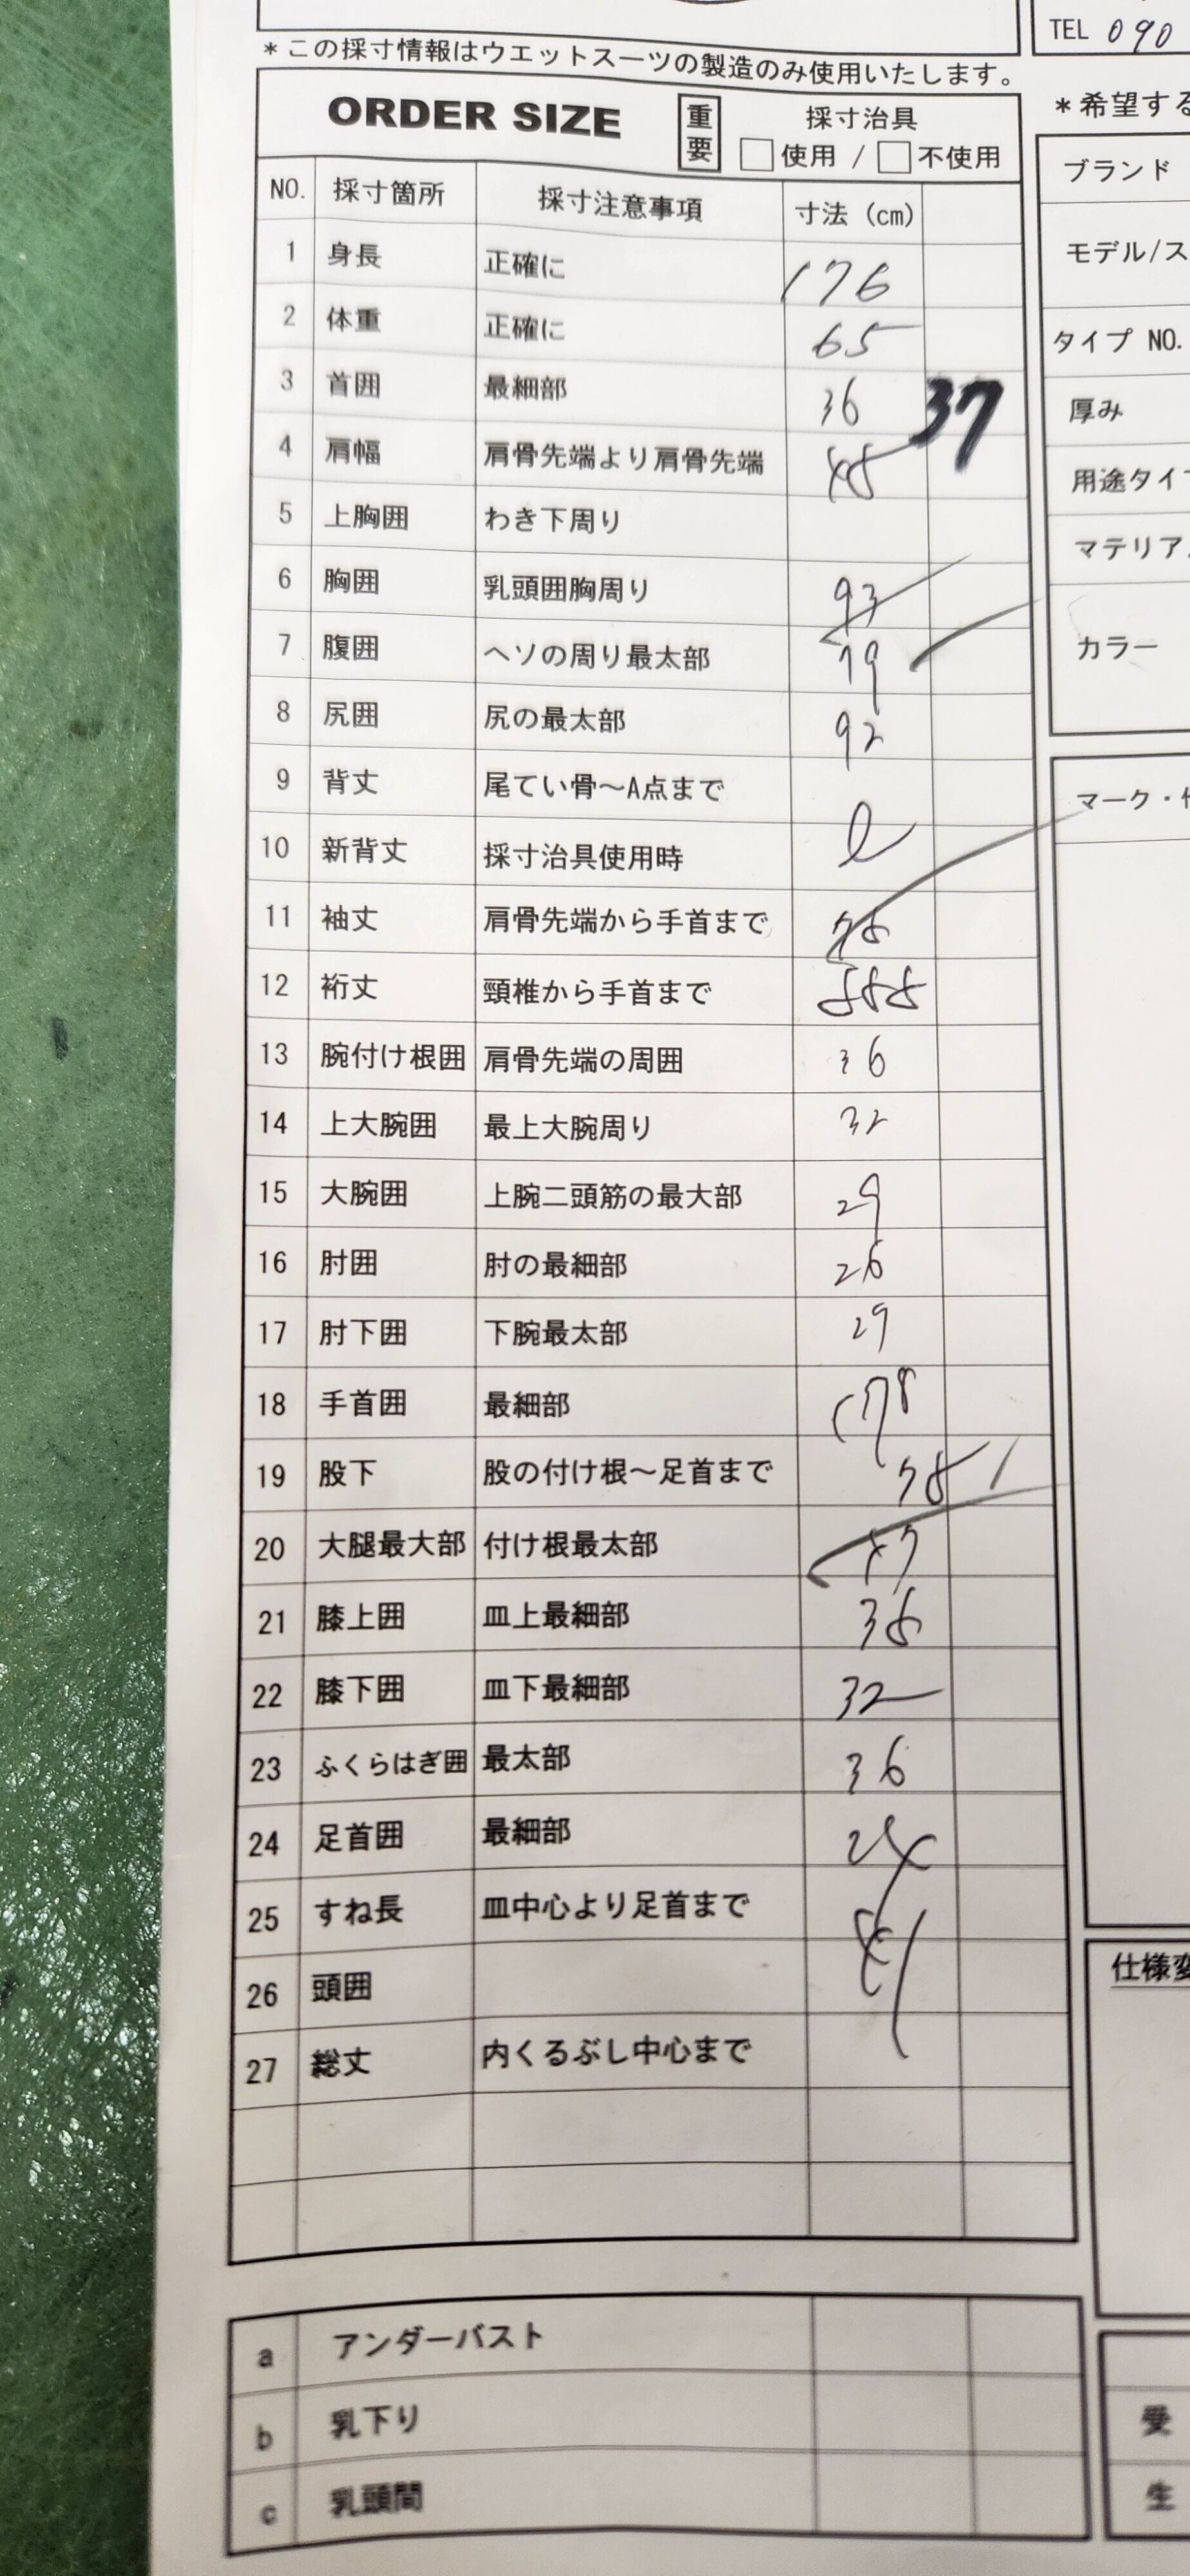 TEL 090
*この採寸情報はウエットスーツの製造のみ使用いたします。
ORDER SIZE 重要 採寸治具
□使用 / □不使用
NO. 採寸箇所 採寸注意事項 寸法 (cm)
1 身長 正確に 176
2 体重 正確に 65
3 首囲 最細部 36 37
4 肩幅 肩骨先端より肩骨先端 45
5 上胸囲 わき下周り
6 胸囲 乳頭囲胸周り 93
7 腹囲 ヘソの周り最太部 79
8 尻囲 尻の最太部 92
9 背丈 尾てい骨〜A点まで
10 新背丈 採寸治具使用時
11 袖丈 肩骨先端から手首まで
12 裄丈 頸椎から手首まで
13 腕付け根囲 肩骨先端の周囲 36
14 上大腕囲 最上大腕周り 32
15 大腕囲 上腕二頭筋の最大部 29
16 肘囲 肘の最細部 26
17 肘下囲 下腕最太部 29
18 手首囲 最細部
19 股下 股の付け根〜足首まで
20 大腿最大部 付け根最太部 47
21 膝上囲 皿上最細部
22 膝下囲 皿下最細部 32
23 ふくらはぎ囲 最太部 36
24 足首囲 最細部
25 すね長 皿中心より足首まで
26 頭囲
27 総丈 内くるぶし中心まで
a アンダーバスト
b 乳下り
c 乳頭間
*希望する
ブランド
モデル/ス
タイプ NO.
厚み
用途タイ
マテリア
カラー
マーク・
仕様変
受
生